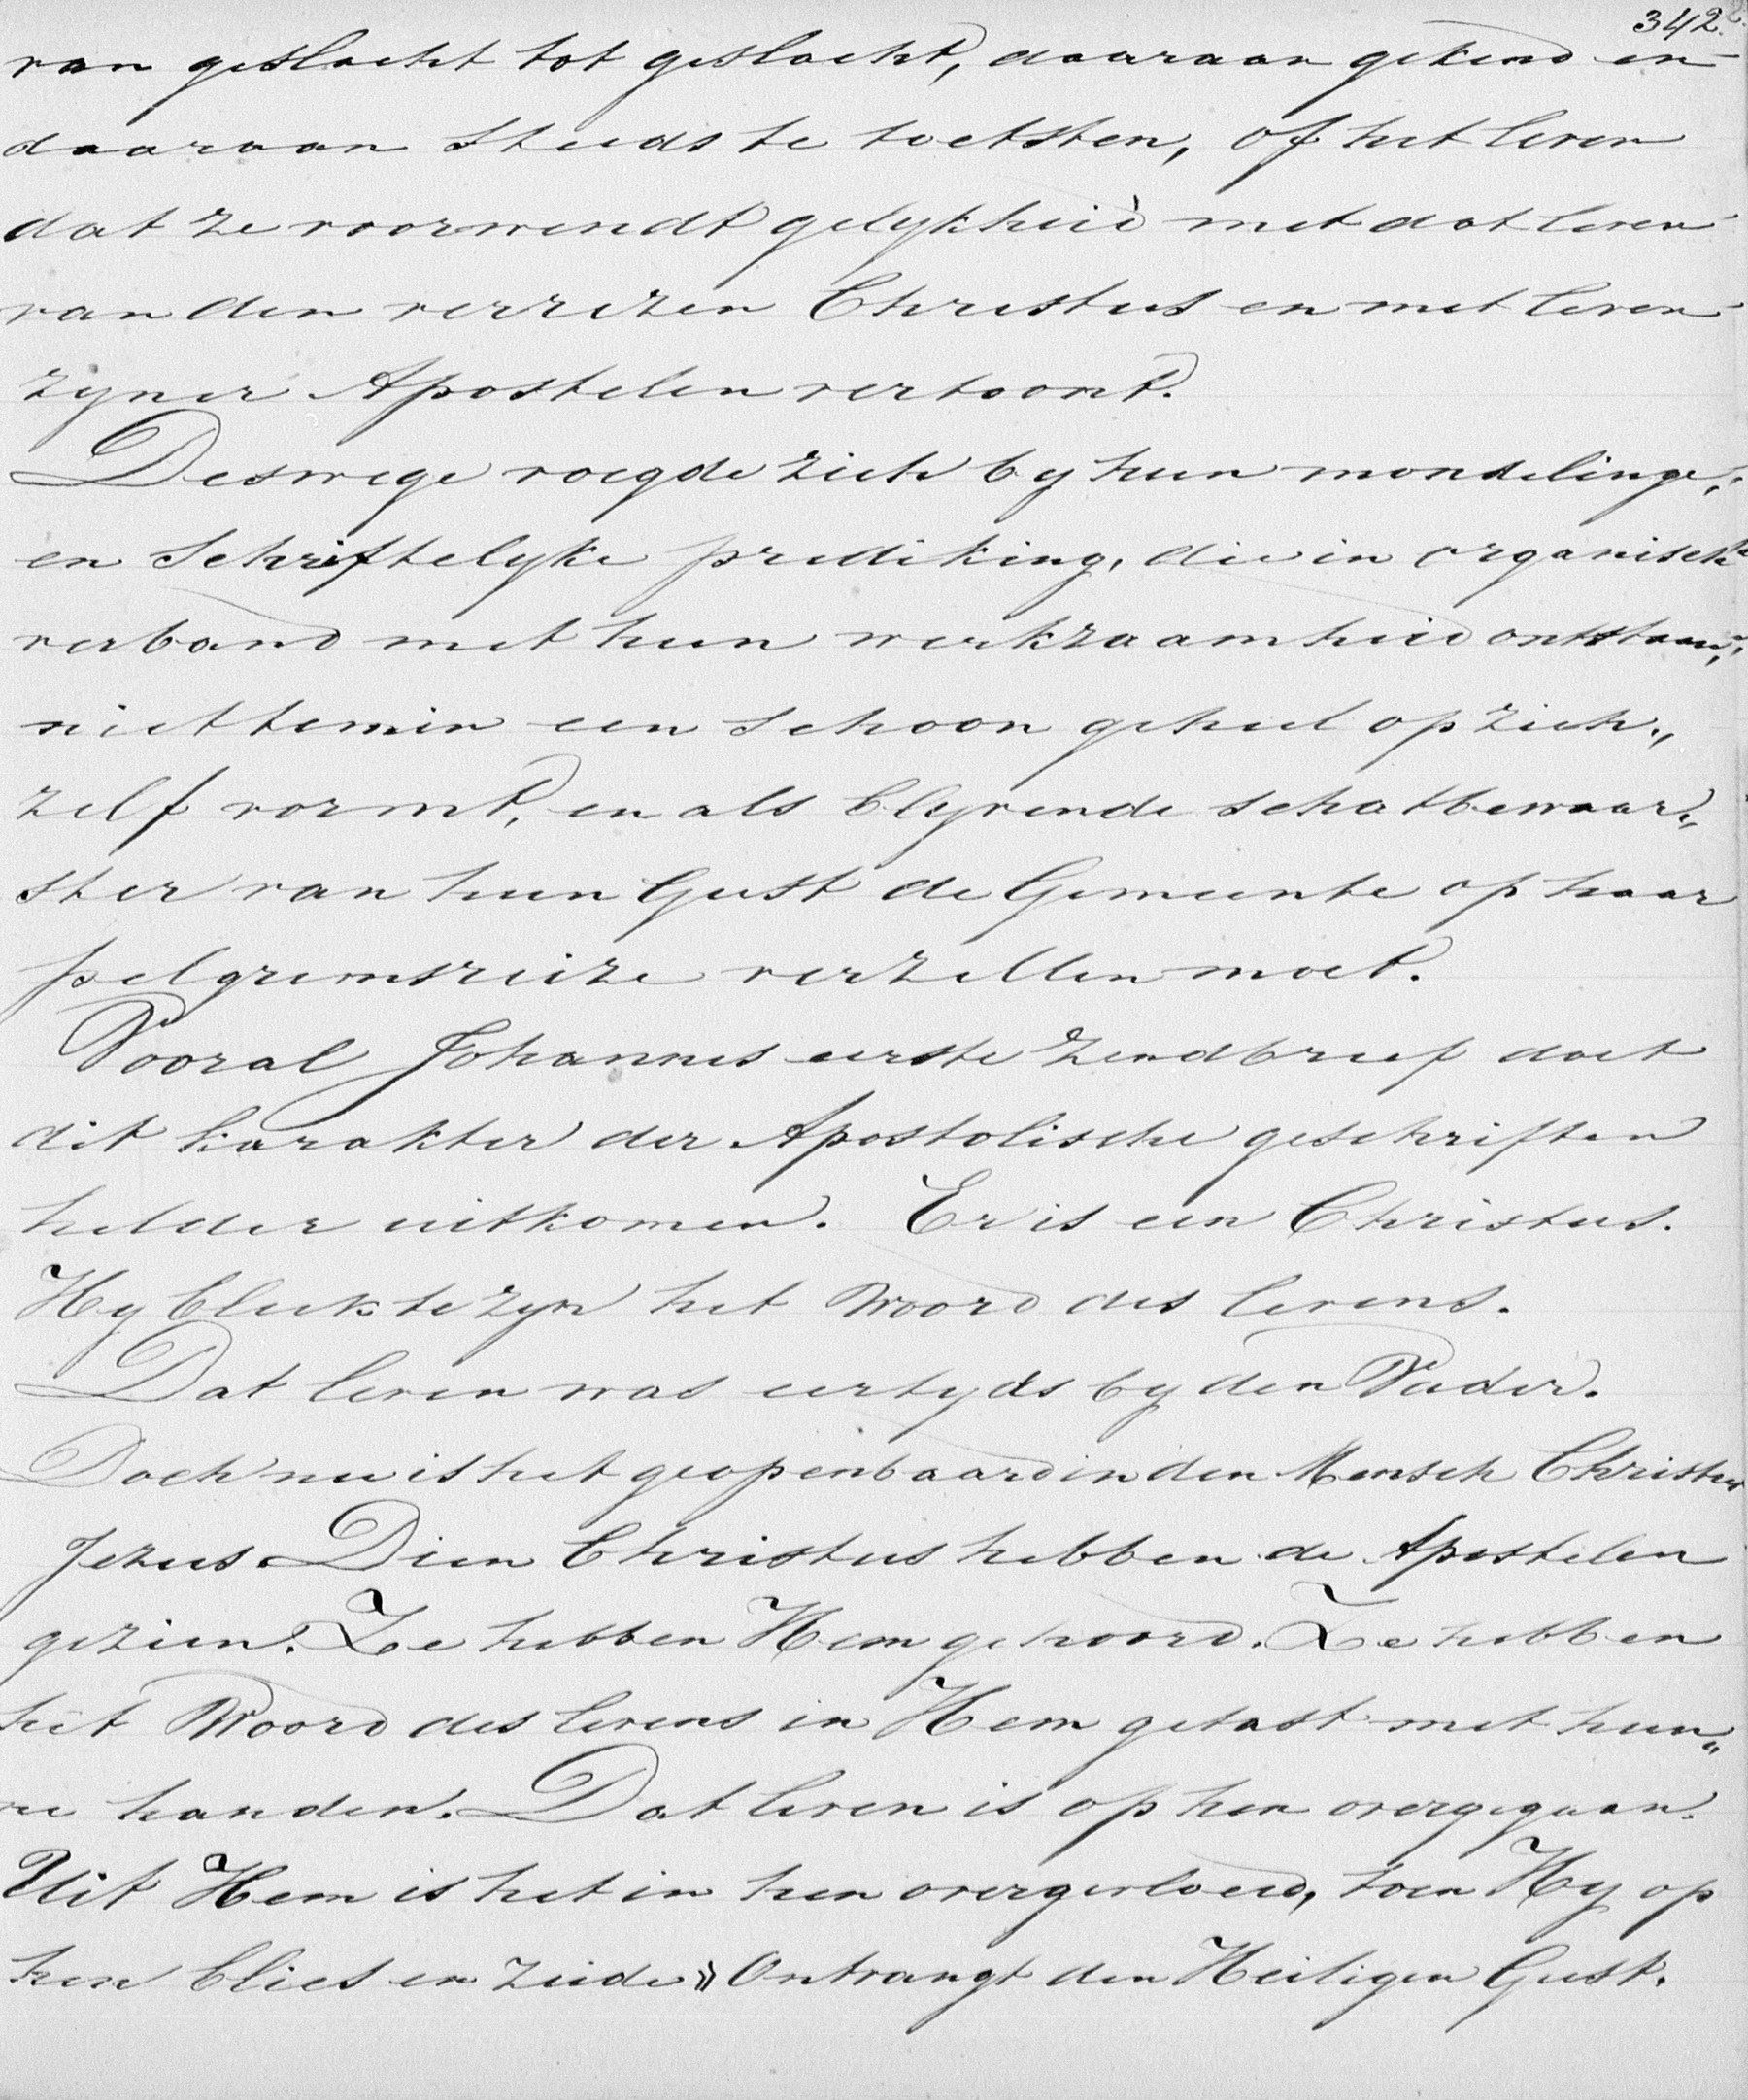 342.
van geslacht tot geslacht, daaraan gekend en
daaraan steeds te toetsten, of het leven
dat ze voorwendt gelykheid met dat leven
van den verrezen Christus en met leven
zyner Apostelen vertoont.
Deswege voegde zich by hun mondelinge,
en schriftelyke prediking, die in organisch
verband met hun werkzaamheid ontstaan,
niettemin een schoon geheel op zich„
zelf vormt, en als blyvende schatbewaar„
ster van hun Geest de Gemeente op haar
pelgrimsreize verzellen moet.
Vooral Johannes eerste Zendbrief doet
dit karakter der Apostolische geschriften
helder uitkomen. Er is een Christus.
Hy bleek te zyn het Woord des levens.
Dat leven was eertyds by den Vader.
Doch nu is het geopenbaard in den Mensch Christus
Jezus. Dien Christus hebben de Apostelen
gezien. Ze hebben Hem gehoord. Ze hebben
het Woord des levens in Hem getast met hun„
ne handen. Dat leven is op hen overgegaan.
Uit Hem is het in hen overgevloeid, toen Hy op
hen blies en zeide » Ontvangt den Heiligen Geest.